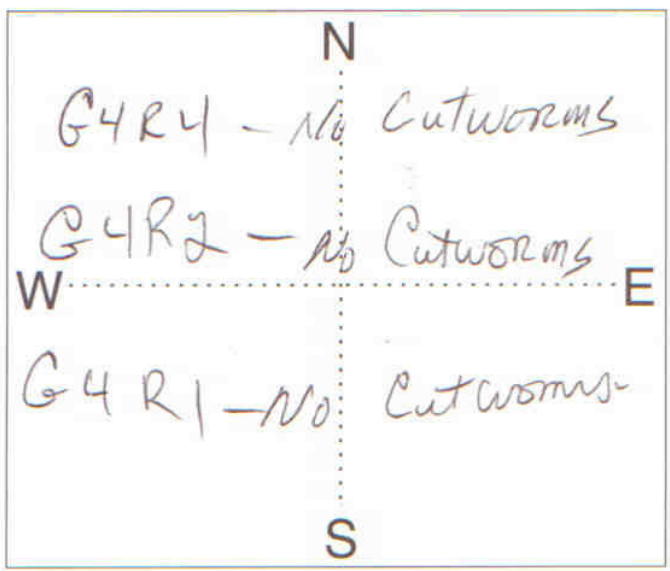 N
G4R4 - No Cutworms
G4R2 - No Cutworms
W E
G4R1 - No Cutworms
S